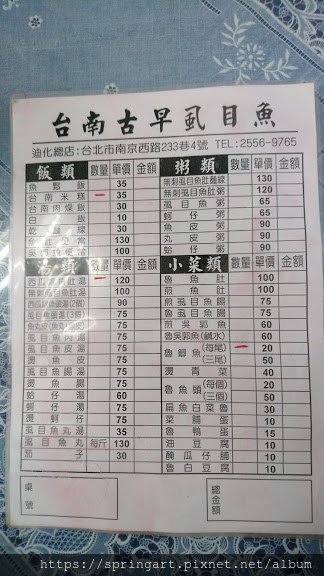 台南古早虱目魚
迪化總店:台北市南京西路233巷4號 TEL:2556-9765
飯類 數量 單價 金額
魚鬆飯 35
台南米糕 一 35
台南肉燥飯 30
白飯 10
乾麵線 30
100
100
湯類 數量 單價 金額
西瓜綿魚肚湯 一 120
無刺虱目魚肚湯 100
90
75
魚丸皮
虱目魚肉湯 75
虱目魚皮湯 75
虱目魚腸湯 75
燙魚腸 75
蛤仔湯 60
蚵仔湯 75
燙魚皮 75
虱目魚丸湯 35
虱目魚丸 每斤 130
茄子 30
粥類 數量 單價 金額
無刺虱目魚肚麵線 130
無刺虱目魚肚粥 120
虱目魚粥 65
蚵仔粥 65
魚皮粥 90
丸皮粥 90
蛤仔粥 90
小菜類 數量 單價 金額
魯魚肚 100
煎魚肚 100
煎虱目魚腸 75
魯虱目魚腸 75
煎吳郭魚 60
魯吳郭魚(鹹水) 60
魯鯽魚(每尾) 一 20
(三尾) 50
燙青菜 40
魯魚頭(每個) 20
(三個) 50
扁魚白菜魯 30
菜脯蛋 10
魯鴨蛋 15
油豆腐 10
醃瓜仔脯 10
魯白豆腐 10
桌號
總金額
https://springart.pixnet.net/album